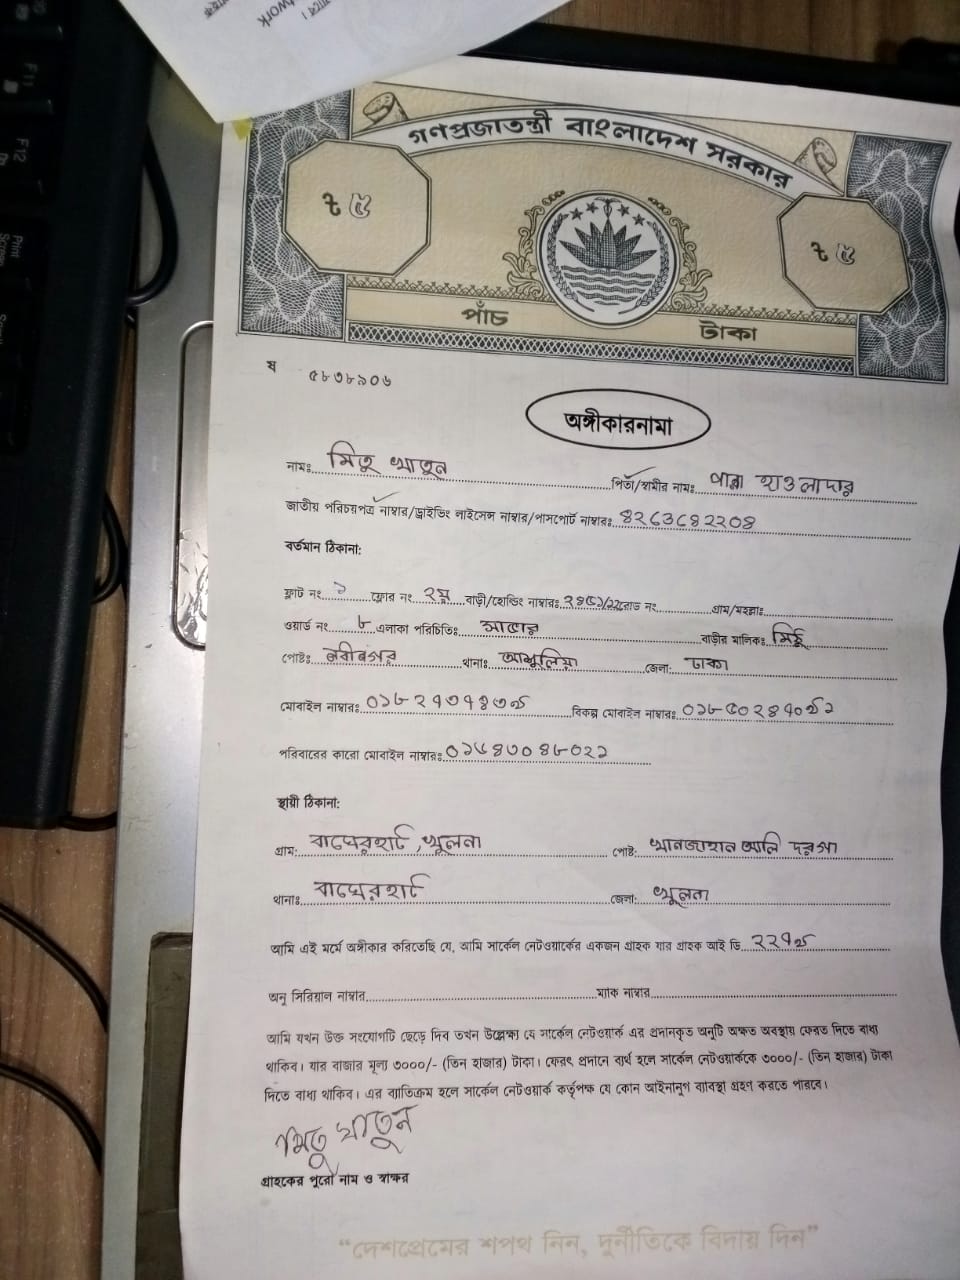 F11
F12
Print
Screen
work
গণপ্রজাতন্ত্রী বাংলাদেশ সরকার
৳ ৫
৳ ৫
পাঁচ টাকা
ষ ৫৮৩৮৯০৬
অঙ্গীকারনামা
নামঃ মিতু খাতুন পিতা/স্বামীর নামঃ পান্না হাওলাদার
জাতীয় পরিচয়পত্র নাম্বার/ড্রাইভিং লাইসেন্স নাম্বার/পাসপোর্ট নাম্বারঃ ৪২৬৩৫৪২২০৪
বর্তমান ঠিকানা:
ফ্লাট নং ১ ফ্লোর নং ২য় বাড়ী/হোল্ডিং নাম্বারঃ রোড নং গ্রাম/মহল্লাঃ
ওয়ার্ড নং ৮ এলাকা পরিচিতিঃ সাভার বাড়ীর মালিকঃ মিঠু
পোষ্টঃ নবীনগর থানাঃ আশুলিয়া জেলা: ঢাকা
মোবাইল নাম্বারঃ ০১৮২৭৩৭৪৩৯ বিকল্প মোবাইল নাম্বারঃ ০১৮৫০২৪৭০৯১
পরিবারের কারো মোবাইল নাম্বারঃ
স্থায়ী ঠিকানা:
গ্রাম: বাঘেরহাট, খুলনা পোষ্ট: খানজাহান আলি দরগা
থানাঃ বাঘেরহাট জেলা: খুলনা
আমি এই মর্মে অঙ্গীকার করিতেছি যে, আমি সার্কেল নেটওয়ার্কের একজন গ্রাহক যার গ্রাহক আই ডি ২২৭৯
অনু সিরিয়াল নাম্বার ম্যাক নাম্বার
আমি যখন উক্ত সংযোগটি ছেড়ে দিব তখন উল্লেক্ষ্য যে সার্কেল নেটওয়ার্ক এর প্রদানকৃত অনুটি অক্ষত অবস্থায় ফেরত দিতে বাধ্য
থাকিব। যার বাজার মূল্য ৩০০০/- (তিন হাজার) টাকা। ফেরৎ প্রদানে ব্যর্থ হলে সার্কেল নেটওয়ার্ককে ৩০০০/- (তিন হাজার) টাকা
দিতে বাধ্য থাকিব। এর ব্যাতিক্রম হলে সার্কেল নেটওয়ার্ক কর্তৃপক্ষ যে কোন আইনানুগ ব্যাবস্থা গ্রহণ করতে পারবে।
মিতু খাতুন
গ্রাহকের পুরো নাম ও স্বাক্ষর
“দেশপ্রেমের শপথ নিন, দুর্নীতিকে বিদায় দিন”